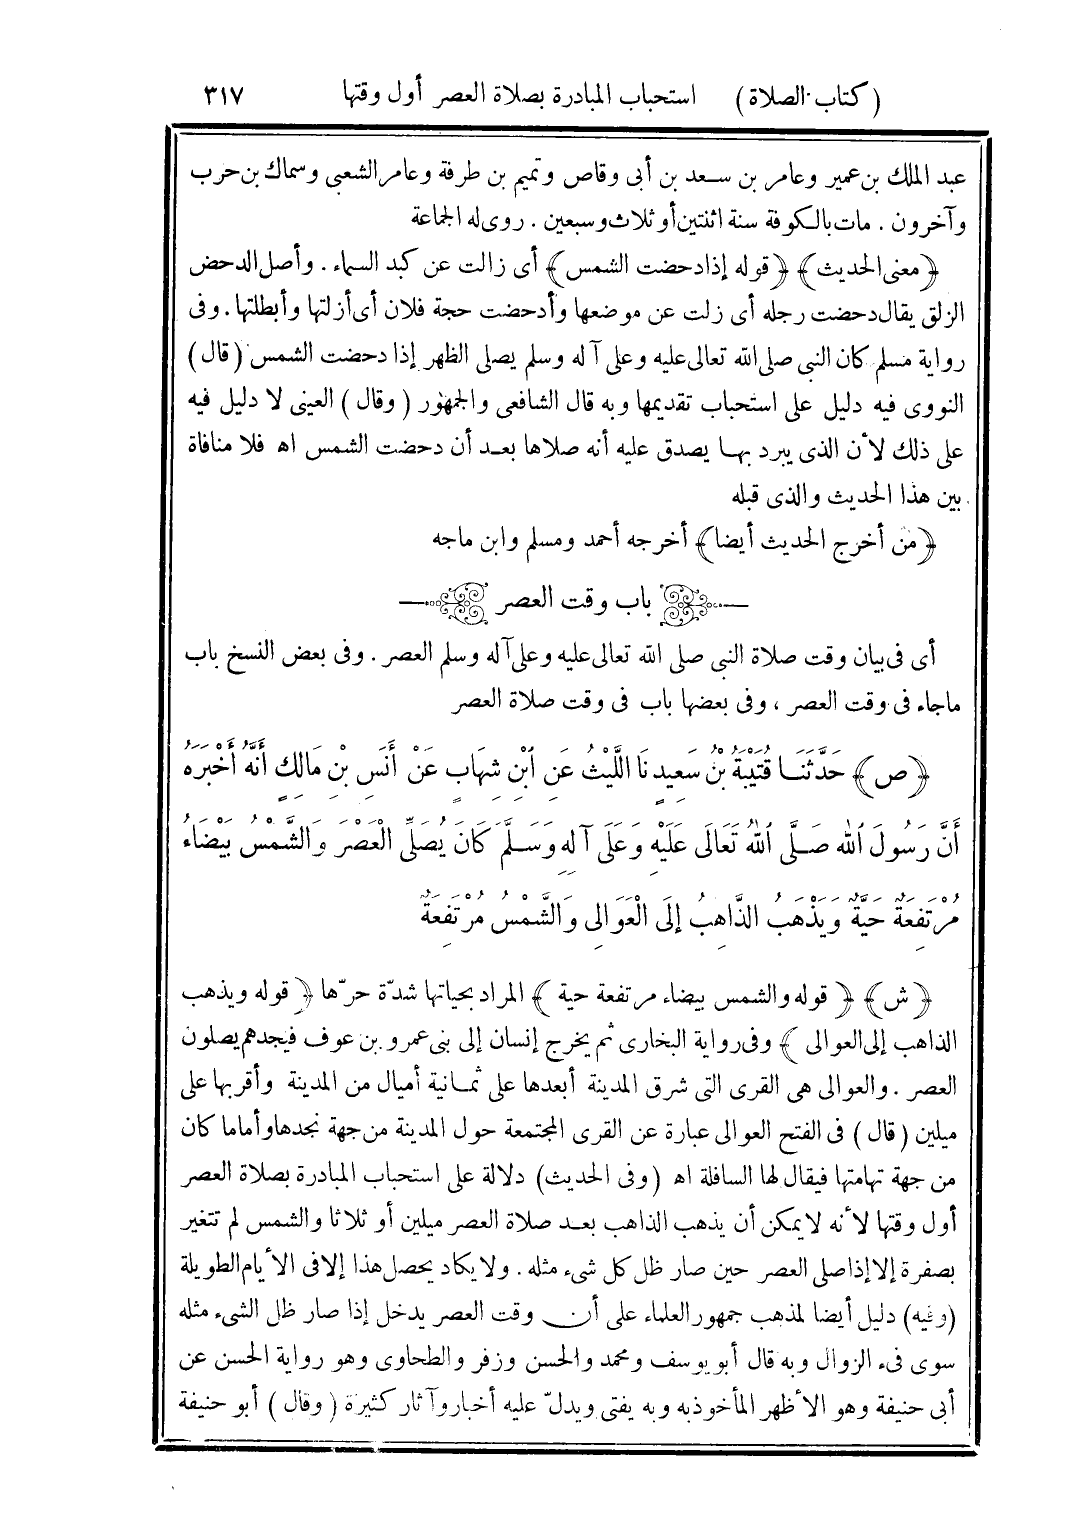 (كتاب الصلاة) استحباب المبادرة بصلاة العصر أول وقتها ٣١٧
عبد الملك بن عمير وعامر بن سعد بن أبى وقاص وتميم بن طرفة وعامر الشعبى وسماك بن حرب
وآخرون . مات بالكوفة سنة اثنتين أو ثلاث وسبعين . روى له الجماعة
﴿معنى الحديث﴾ ﴿قوله إذا دحضت الشمس﴾ أى زالت عن كبد السماء . وأصل الدحض
الزلق يقال دحضت رجله أى زلت عن موضعها وأدحضت حجة فلان أى أزلتها وأبطلتها . وفى
رواية مسلم كان النبى صلى الله تعالى عليه وعلى آله وسلم يصلى الظهر إذا دحضت الشمس (قال)
النووى فيه دليل على استحباب تقديمها وبه قال الشافعى والجمهور (وقال) العينى لا دليل فيه
على ذلك لأن الذى يبرد بها يصدق عليه أنه صلاها بعد أن دحضت الشمس اه فلا منافاة
بين هذا الحديث والذى قبله
﴿من أخرج الحديث أيضا﴾ أخرجه أحمد ومسلم وابن ماجه
باب وقت العصر
أى فى بيان وقت صلاة النبى صلى الله تعالى عليه وعلى آله وسلم العصر . وفى بعض النسخ باب
ماجاء فى وقت العصر ، وفى بعضها باب فى وقت صلاة العصر
﴿ص﴾ حَدَّثَنَا قُتَيْبَةُ بْنُ سَعِيدٍ نَا اللَّيْثُ عَنِ ابْنِ شِهَابٍ عَنْ أَنَسِ بْنِ مَالِكٍ أَنَّهُ أَخْبَرَهُ
أَنَّ رَسُولَ اللهِ صَلَّى اللهُ تَعَالَى عَلَيْهِ وَعَلَى آلِهِ وَسَلَّمَ كَانَ يُصَلِّى الْعَصْرَ وَالشَّمْسُ بَيْضَاءُ
مُرْتَفِعَةٌ حَيَّةٌ وَيَذْهَبُ الذَّاهِبُ إِلَى الْعَوَالِى وَالشَّمْسُ مُرْتَفِعَةٌ
﴿ش﴾ ﴿قوله والشمس بيضاء مرتفعة حية﴾ المراد بحياتها شدّة حرّها ﴿قوله ويذهب
الذاهب إلى العوالى﴾ وفى رواية البخارى ثم يخرج إنسان إلى بنى عمرو بن عوف فيجدهم يصلون
العصر . والعوالى هى القرى التى شرق المدينة أبعدها على ثمانية أميال من المدينة وأقربها على
ميلين (قال) فى الفتح العوالى عبارة عن القرى المجتمعة حول المدينة من جهة نجدها وأما ما كان
من جهة تهامتها فيقال لها السافلة اه (وفى الحديث) دلالة على استحباب المبادرة بصلاة العصر
أول وقتها لأنه لا يمكن أن يذهب الذاهب بعد صلاة العصر ميلين أو ثلاثا والشمس لم تتغير
بصفرة إلا إذا صلى العصر حين صار ظل كل شىء مثله . ولا يكاد يحصل هذا إلا فى الأيام الطويلة
(وفيه) دليل أيضا لمذهب جمهور العلماء على أن وقت العصر يدخل إذا صار ظل الشىء مثله
سوى فىء الزوال وبه قال أبو يوسف ومحمد والحسن وزفر والطحاوى وهو رواية الحسن عن
أبى حنيفة وهو الأظهر المأخوذ به وبه يفتى ويدلّ عليه أخبار وآثار كثيرة (وقال) أبو حنيفة